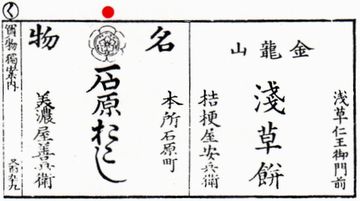 淺草仁王御門前
金龍山
淺草餅
桔梗屋安兵衛
本所石原町
名物
石原おこし
美濃屋善兵衛
く
買物獨案内